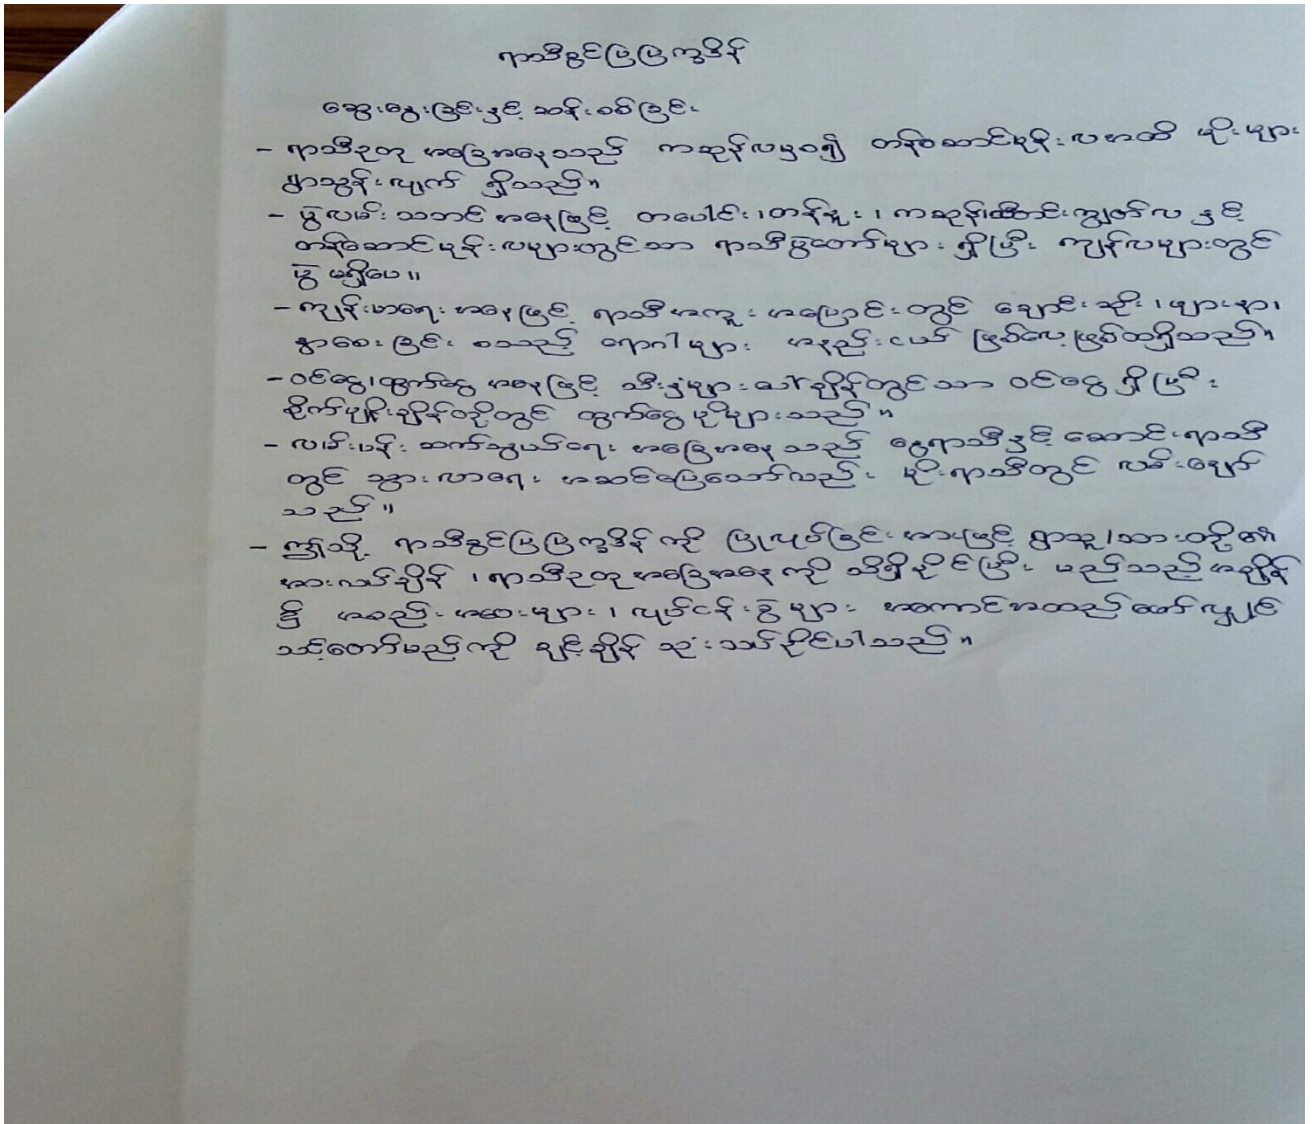 ရာသီခွင်ပြပြက္ခဒိန်
ဆွေးနွေးခြင်းနှင့် ဆန်းစစ်ခြင်း
- ရာသီဥတု အခြေအနေသည် ကဆုန်လမှစ၍ တန်ဆောင်မုန်းလအထိ မိုးများ
ရွာသွန်းလျက် ရှိသည်။
- ပွဲလမ်းသဘင် အနေဖြင့် တပေါင်း၊ တန်ခူး၊ ကဆုန်၊ သီတင်းကျွတ်လ နှင့်
တန်ဆောင်မုန်းလများတွင်သာ ရာသီပွဲတော်များ ရှိပြီး ကျန်လများတွင်
ပွဲ မရှိပေ။
- ကျန်းမာရေး အနေဖြင့် ရာသီအကူး အပြောင်းတွင် ချောင်းဆိုး၊ ဖျားနာ၊
နှာစေးခြင်း စသည့် ရောဂါများ အနည်းငယ် ဖြစ်လေ့ဖြစ်ထရှိသည်။
- ဝင်ငွေ၊ ထွက်ငွေ အနေဖြင့် သီးနှံများ ပေါ်ချိန်တွင်သာ ဝင်ငွေ ရှိပြီး
စိုက်ပျိုးချိန်တို့တွင် ထွက်ငွေ ပိုများသည်။
- လမ်းပန်း ဆက်သွယ်ရေး အခြေအနေသည် နွေရာသီနှင့် ဆောင်းရာသီ
တွင် သွားလာရေး အဆင်ပြေသော်လည်း မိုးရာသီတွင် လမ်းချော်
သည်။
- ဤသို့ ရာသီခွင်ပြပြက္ခဒိန်ကို ပြုလုပ်ခြင်းအားဖြင့် ရွာသူ၊ သားတို့၏
အားလပ်ချိန်၊ ရာသီဥတု အခြေအနေကို သိရှိနိုင်ပြီး မည်သည့်အချိန်
၌ အစည်းအဝေးများ၊ လုပ်ငန်းခွဲများ အကောင်အထည်ဖော်လျှင်
သင့်တော်မည်ကို ချင့်ချိန် သုံးသပ်နိုင်ပါသည်။